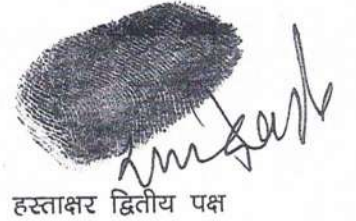 हस्ताक्षर द्वितीय पक्ष